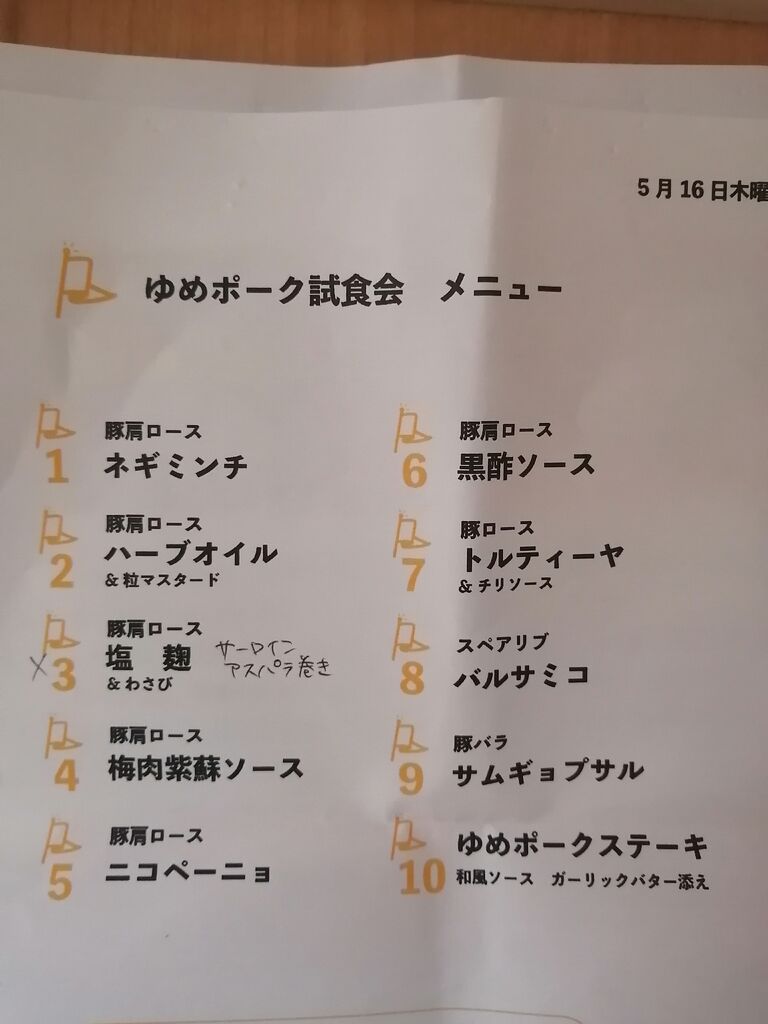 5月16日木曜
ゆめポーク試食会 メニュー
1
豚肩ロース
ネギミンチ
2
豚肩ロース
ハーブオイル
&粒マスタード
×3
豚肩ロース
塩 麹
&わさび
サーロイン
アスパラ巻き
4
豚肩ロース
梅肉紫蘇ソース
5
豚肩ロース
ニコペーニョ
6
豚肩ロース
黒酢ソース
7
豚ロース
トルティーヤ
&チリソース
8
スペアリブ
バルサミコ
9
豚バラ
サムギョプサル
10
ゆめポークステーキ
和風ソース ガーリックバター添え